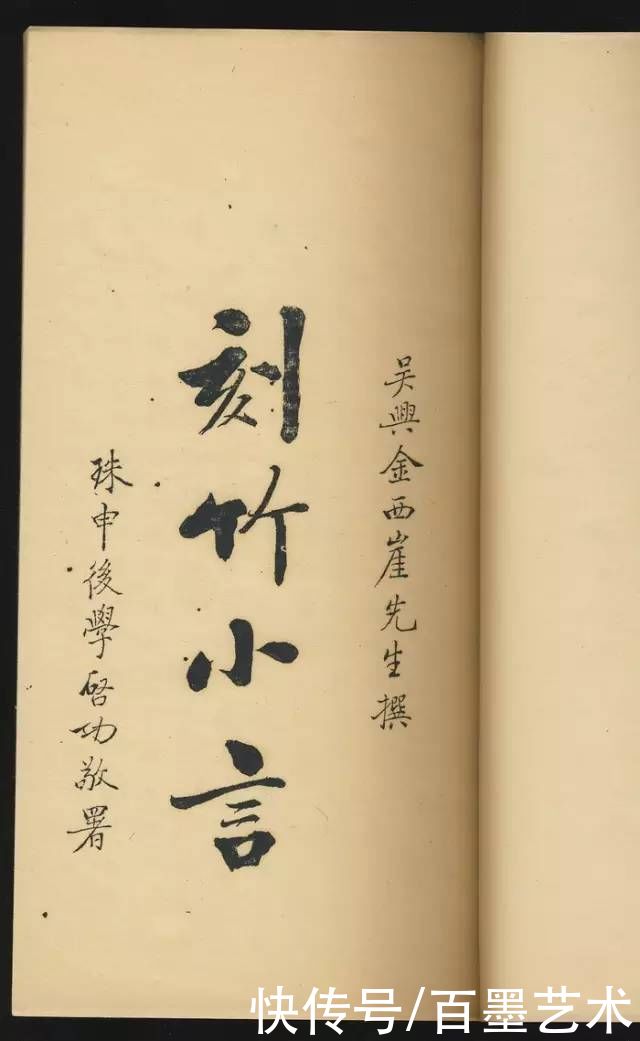 吴興金西崖先生撰
刻竹小言
珠申後學啓功敬署
快传号/百墨艺术